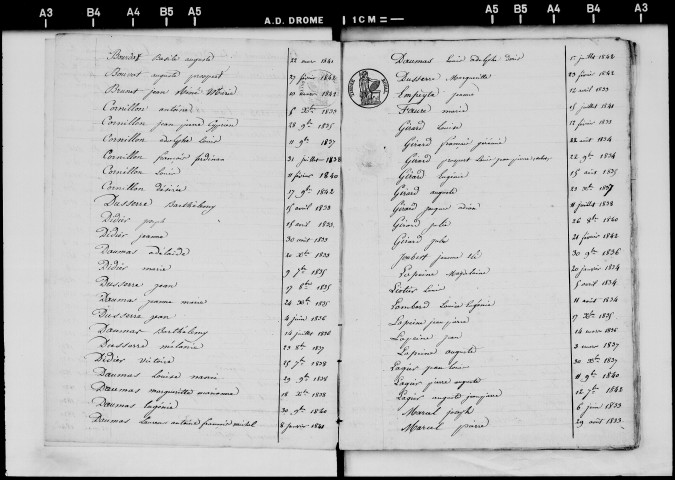 A3 B4 A4 B5 A5 A.D. DROME 1 CM = A5 B5 A4 B4 A3
Bourdet Basile auguste 22 avr 1841
Bouvet auguste prosper 27 février 1842
Brunet jean aimé Marie 10 mars 1842
Cornillon antoine 6 Xbre 1833
Cornillon jean pierre Cyprien 28 9bre 1835
Cornillon adolphe Louis 11 9bre 1837
Cornillon françois ferdinan 31 juillet 1838
Cornillon Louise 11 février 1840
Cornillon Désirée 17 9bre 1842
Dusserre Barthélemy 15 avril 1833
Didier joseph 15 avril 1833
Didier jeanne 30 aout 1833
Daumas adélaïde 20 Xbre 1833
Didier marie 9 7bre 1835
Dusserre jean 17 8bre 1835
Daumas jeanne marie 24 Xbre 1835
Dusserre jean 4 juin 1836
Daumas Barthélemy 14 juillet 1836
Dusserre mélanie 23 8bre 1837
Didier victoire 25 7bre 1838
Daumas Louise marie 29 9bre 1838
Daumas marguerite marianne 18 Xbre 1838
Daumas eugénie 30 9bre 1840
Daumas Laurens antoine françois michel 8 janvier 1841
Daumas Louis adolphe 1er juillet 1842
Dusserre Marguerite 23 février 1842
Empeyta jeanne 12 avril 1833
Faure marie 15 juillet 1841
Girard Louise 12 février 1833
Girard françois jérémie 22 aout 1834
Girard prosper Louis jean pierre 22 9bre 1834
Girard eugénie 15 aout 1835
Girard auguste 23 Xbre 1837
Girard jacques 11 juillet 1838
Girard julie 26 8bre 1840
Girard jules 21 février 1842
Joubert jeanne 30 9bre 1836
Lapeine Magdeleine 20 janvier 1834
Liotier Louis 5 avril 1834
Lombard Louise Eugénie 11 aout 1834
Lapeine jean pierre 17 Xbre 1835
Lapeine jean 14 mars 1836
Lapeine auguste 3 mars 1837
Lagier jean Louis 30 Xbre 1837
Lagier pierre auguste 11 9bre 1840
Lagier auguste jean pierre 12 7bre 1842
Marcel joseph 6 juin 1833
Marcel pierre 29 aout 1833